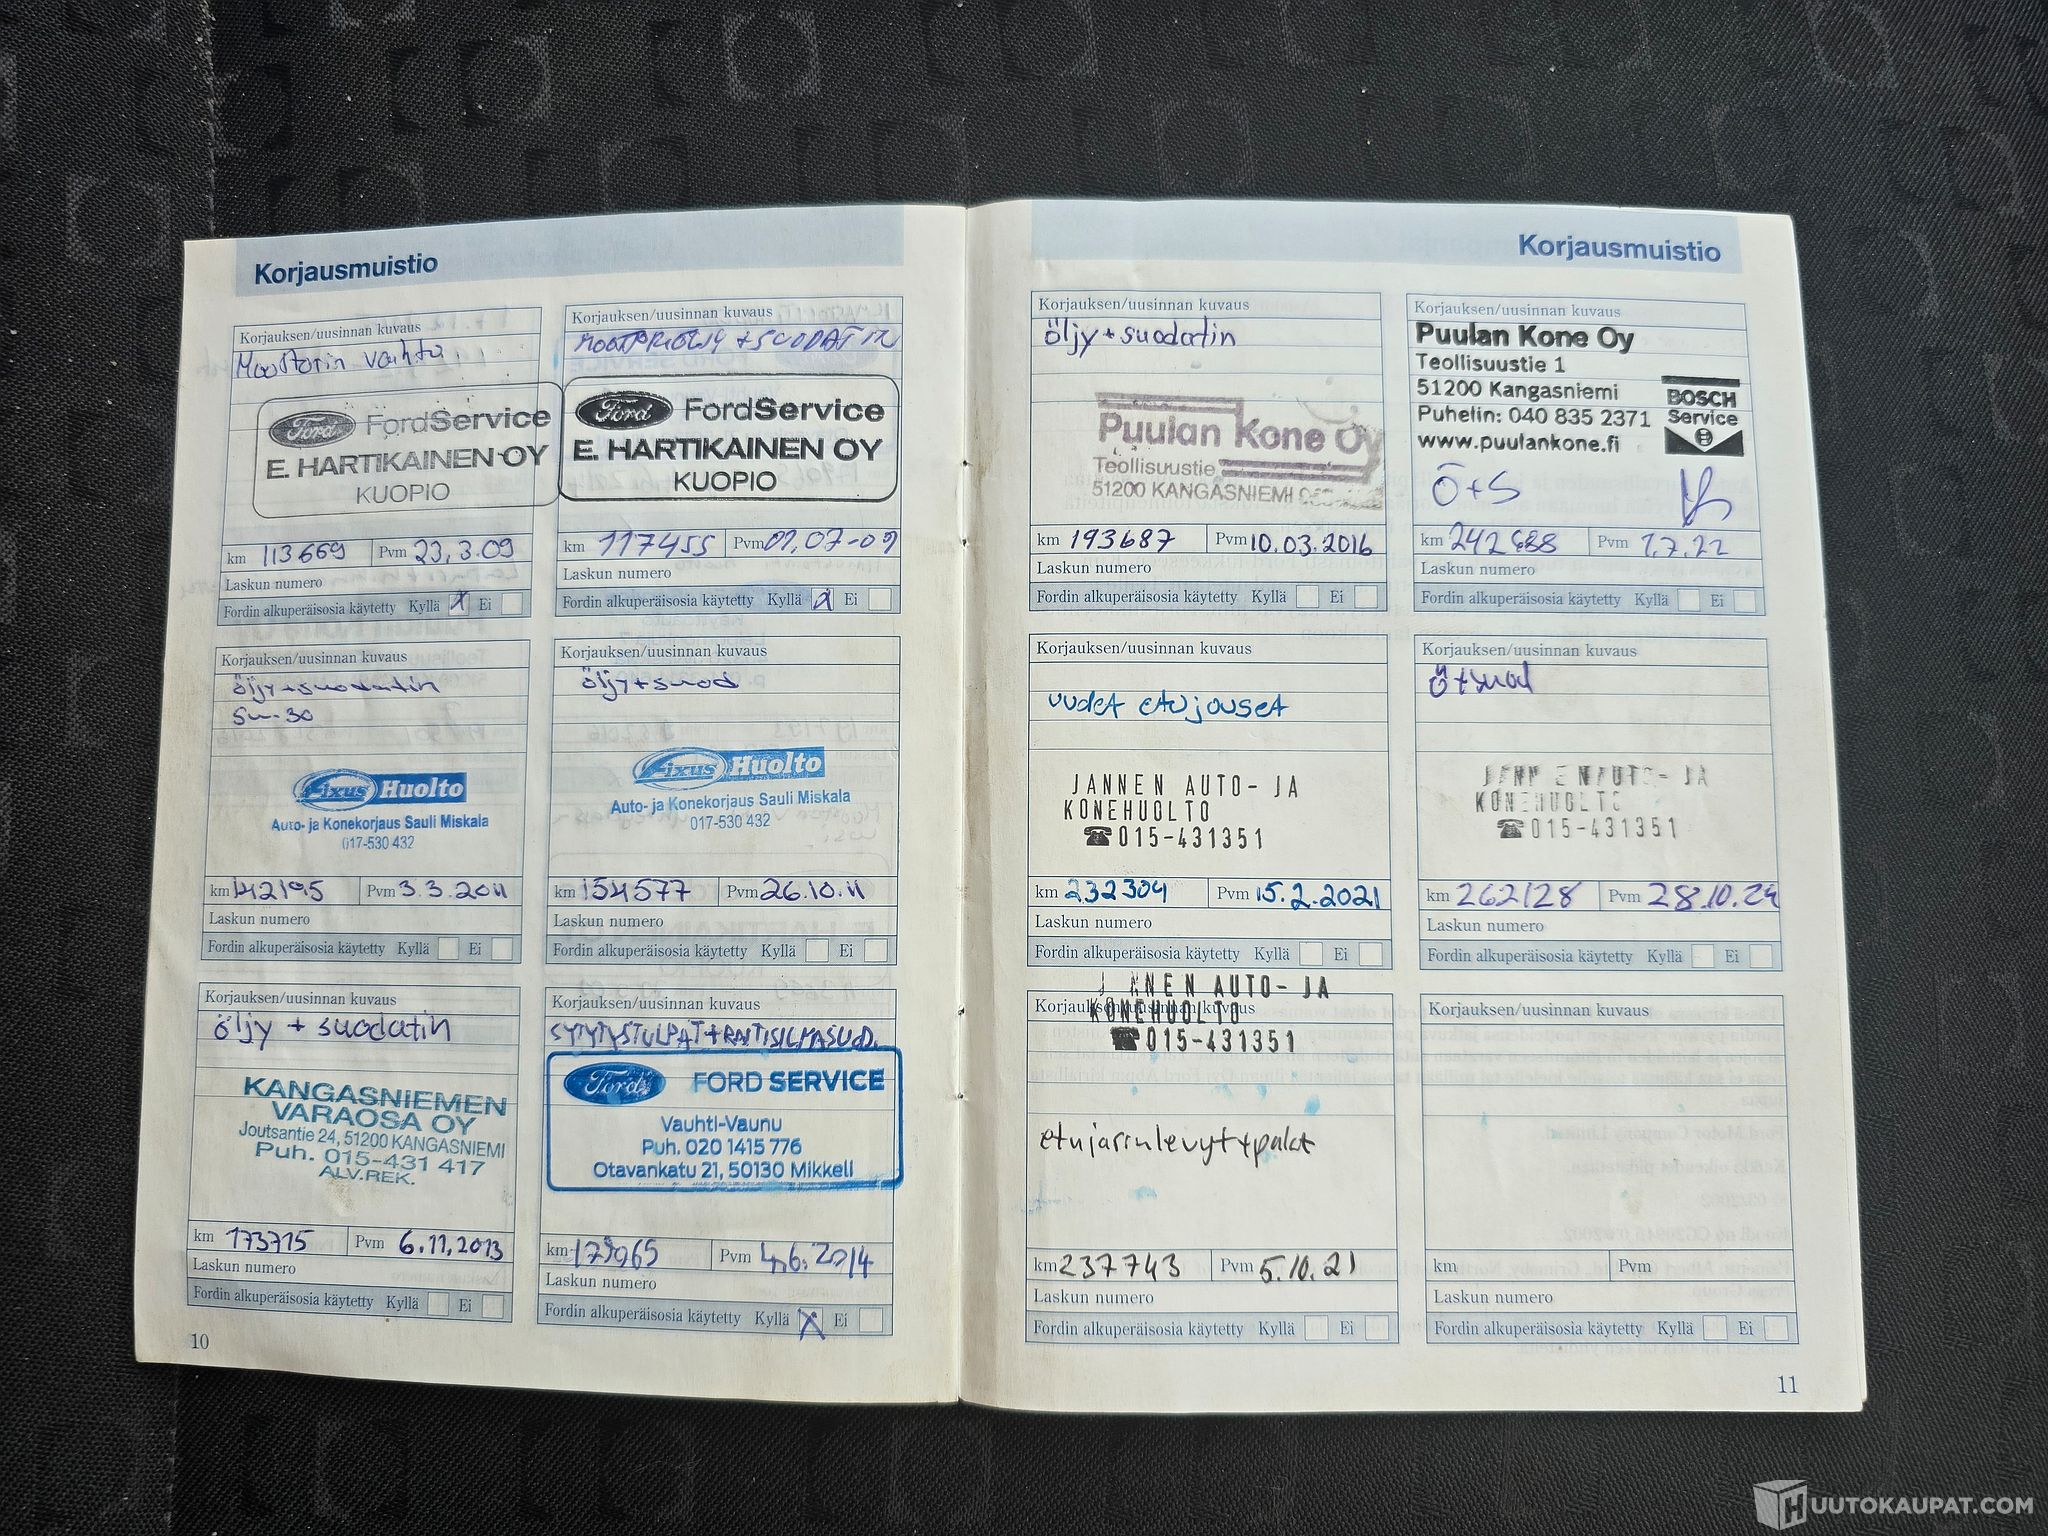 Korjausmuistio
Korjauksen/uusinnan kuvaus
Moottorin vaihto
Ford FordService
E. HARTIKAINEN OY
KUOPIO
km 113669 Pvm 23.3.09
Laskun numero
Fordin alkuperäisosia käytetty Kyllä X Ei
Korjauksen/uusinnan kuvaus
MOOTTORIÖLJY + SUODATIN
Ford FordService
E. HARTIKAINEN OY
KUOPIO
km 117455 Pvm 01.07-09
Laskun numero
Fordin alkuperäisosia käytetty Kyllä X Ei
Korjauksen/uusinnan kuvaus
öljy+suodatin
5w-30
Fixus Huolto
Auto- ja Konekorjaus Sauli Miskala
017-530 432
km 142195 Pvm 3.3.2011
Laskun numero
Fordin alkuperäisosia käytetty Kyllä Ei
Korjauksen/uusinnan kuvaus
öljy+suod
Fixus Huolto
Auto- ja Konekorjaus Sauli Miskala
017-530 432
km 154577 Pvm 26.10.11
Laskun numero
Fordin alkuperäisosia käytetty Kyllä Ei
Korjauksen/uusinnan kuvaus
öljy + suodatin
KANGASNIEMEN
VARAOSA OY
Joutsantie 24, 51200 KANGASNIEMI
Puh. 015-431 417
ALV.REK.
km 173715 Pvm 6.11.2013
Laskun numero
Fordin alkuperäisosia käytetty Kyllä Ei
Korjauksen/uusinnan kuvaus
SYTYTYSTULPAT+RAITISILMASUOD.
Ford FORD SERVICE
Vauhti-Vaunu
Puh. 020 1415 776
Otavankatu 21, 50130 Mikkeli
km Pvm 4.6.2014
Laskun numero
Fordin alkuperäisosia käytetty Kyllä X Ei
10
Korjausmuistio
Korjauksen/uusinnan kuvaus
öljy + suodatin
Puulan Kone Oy
Teollisuustie
51200 KANGASNIEMI
km 193687 Pvm 10.03.2016
Laskun numero
Fordin alkuperäisosia käytetty Kyllä Ei
Korjauksen/uusinnan kuvaus
Puulan Kone Oy
Teollisuustie 1
51200 Kangasniemi
Puhelin: 040 835 2371
www.puulankone.fi
BOSCH
Service
Ö+S
km Pvm 1.7.22
Laskun numero
Fordin alkuperäisosia käytetty Kyllä Ei
Korjauksen/uusinnan kuvaus
uudet etujouset
JANNEN AUTO- JA
KONEHUOLTO
☎015-431351
km 232304 Pvm 15.2.2021
Laskun numero
Fordin alkuperäisosia käytetty Kyllä Ei
Korjauksen/uusinnan kuvaus
ö+suod
JANNEN AUTO- JA
KONEHUOLTO
☎015-431351
km 262128 Pvm 28.10.24
Laskun numero
Fordin alkuperäisosia käytetty Kyllä Ei
JANNEN AUTO- JA
Korjauksen/uusinnan kuvaus
KONEHUOLTO
☎015-431351
etujarrulevyt+palat
km 237743 Pvm 5.10.21
Laskun numero
Fordin alkuperäisosia käytetty Kyllä Ei
Korjauksen/uusinnan kuvaus
km Pvm
Laskun numero
Fordin alkuperäisosia käytetty Kyllä Ei
11
HUUTOKAUPAT.COM